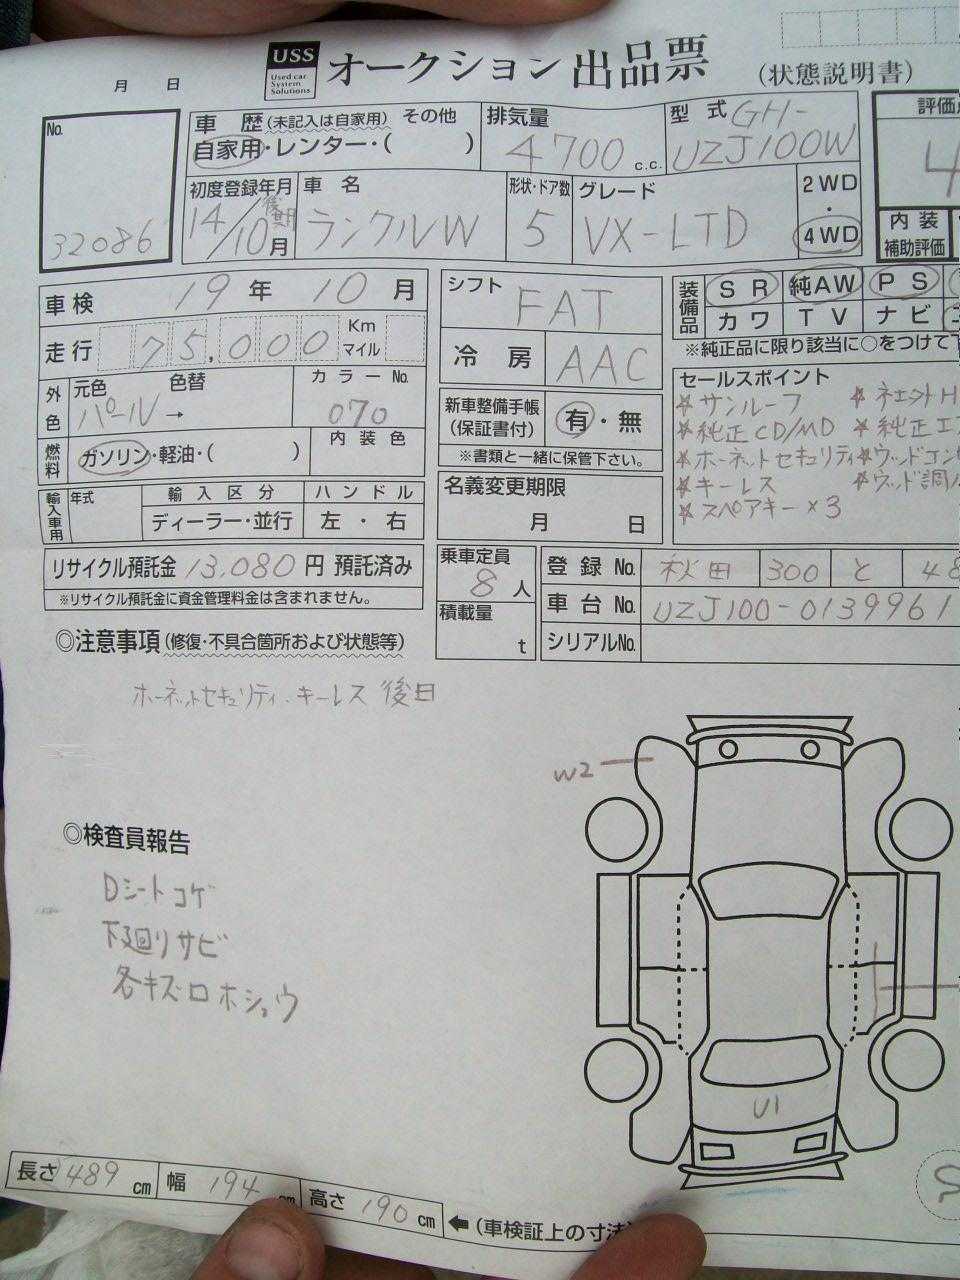 USS
Used car
System
Solutions
オークション 出品票
(状態説明書)
月 日
No.
32086
車歴 (未記入は自家用) その他
自家用・レンター・( )
排気量
4700 c.c.
型式
GH-
UZJ100W
評価点
4
初度登録年月
14/10月
後期
車名
ランクルW
形状・ドア数
5
グレード
VX-LTD
2WD
・
4WD
内装
補助評価
車検 19年 10月
走行 75,000 Km
マイル
シフト
FAT
冷房 AAC
装備品
SR 純AW PS
カワ TV ナビ
※純正品に限り該当に○をつけて下
外色
元色 色替
パール→
カラーNo.
070
燃料
ガソリン・軽油・( )
内装色
新車整備手帳
(保証書付)
有・無
※書類と一緒に保管下さい。
セールスポイント
☆サンルーフ
☆純正CD/MD ☆純正エ
☆ホーネットセキュリティ ☆ウッドコン
☆キーレス ☆ウッド調
☆スペアキー×3
輸入車用
年式
輸入区分
ディーラー・並行
ハンドル
左・右
名義変更期限
月 日
リサイクル預託金 13,080 円 預託済み
※リサイクル預託金に資金管理料金は含まれません。
乗車定員
8人
積載量
t
登録No. 秋田 300 と 48
車台No. UZJ100-0139961
シリアルNo.
◎注意事項 (修復・不具合箇所および状態等)
ホーネットセキュリティ・キーレス 後日
W2
◎検査員報告
Dシートコゲ
下廻りサビ
各キズロホショウ
U1
長さ 489 cm 幅 194 cm 高さ 190 cm ←(車検証上の寸法)